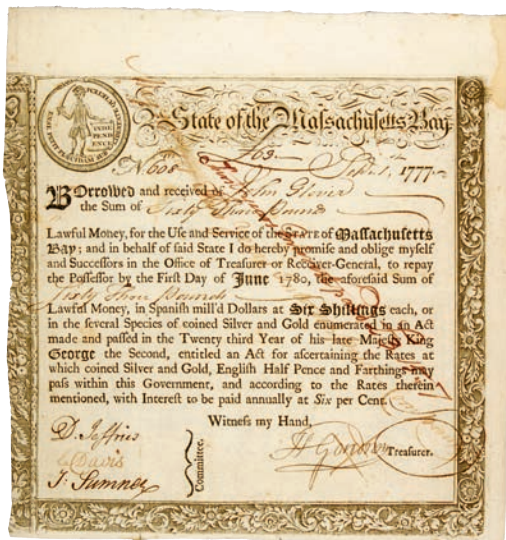 INDE
PEND
ENCE
State of the Massachusetts Bay
No 608 £63 Sept. 1, 1777
BOrrowed and received of John Glover
the Sum of Sixty Three Pounds
Lawful Money, for the Use and Service of the STATE of Massachusetts
Bay; and in behalf of said State I do hereby promise and oblige myself
and Successors in the Office of Treasurer or Receiver-General, to repay
the Possessor by the First Day of June 1780, the aforesaid Sum of
Sixty Three Pounds
Lawful Money, in Spanish mill'd Dollars at Six Shillings each, or
in the several Species of coined Silver and Gold enumerated in an Act
made and passed in the Twenty third Year of his late Majesty King
George the Second, entitled an Act for ascertaining the Rates at
which coined Silver and Gold, English Half Pence and Farthings may
pass within this Government, and according to the Rates therein
mentioned, with Interest to be paid annually at Six per Cent.
Witness my Hand,
D. Jeffries
Davis
J: Sumner
Committee.
H Gardner Treasurer.